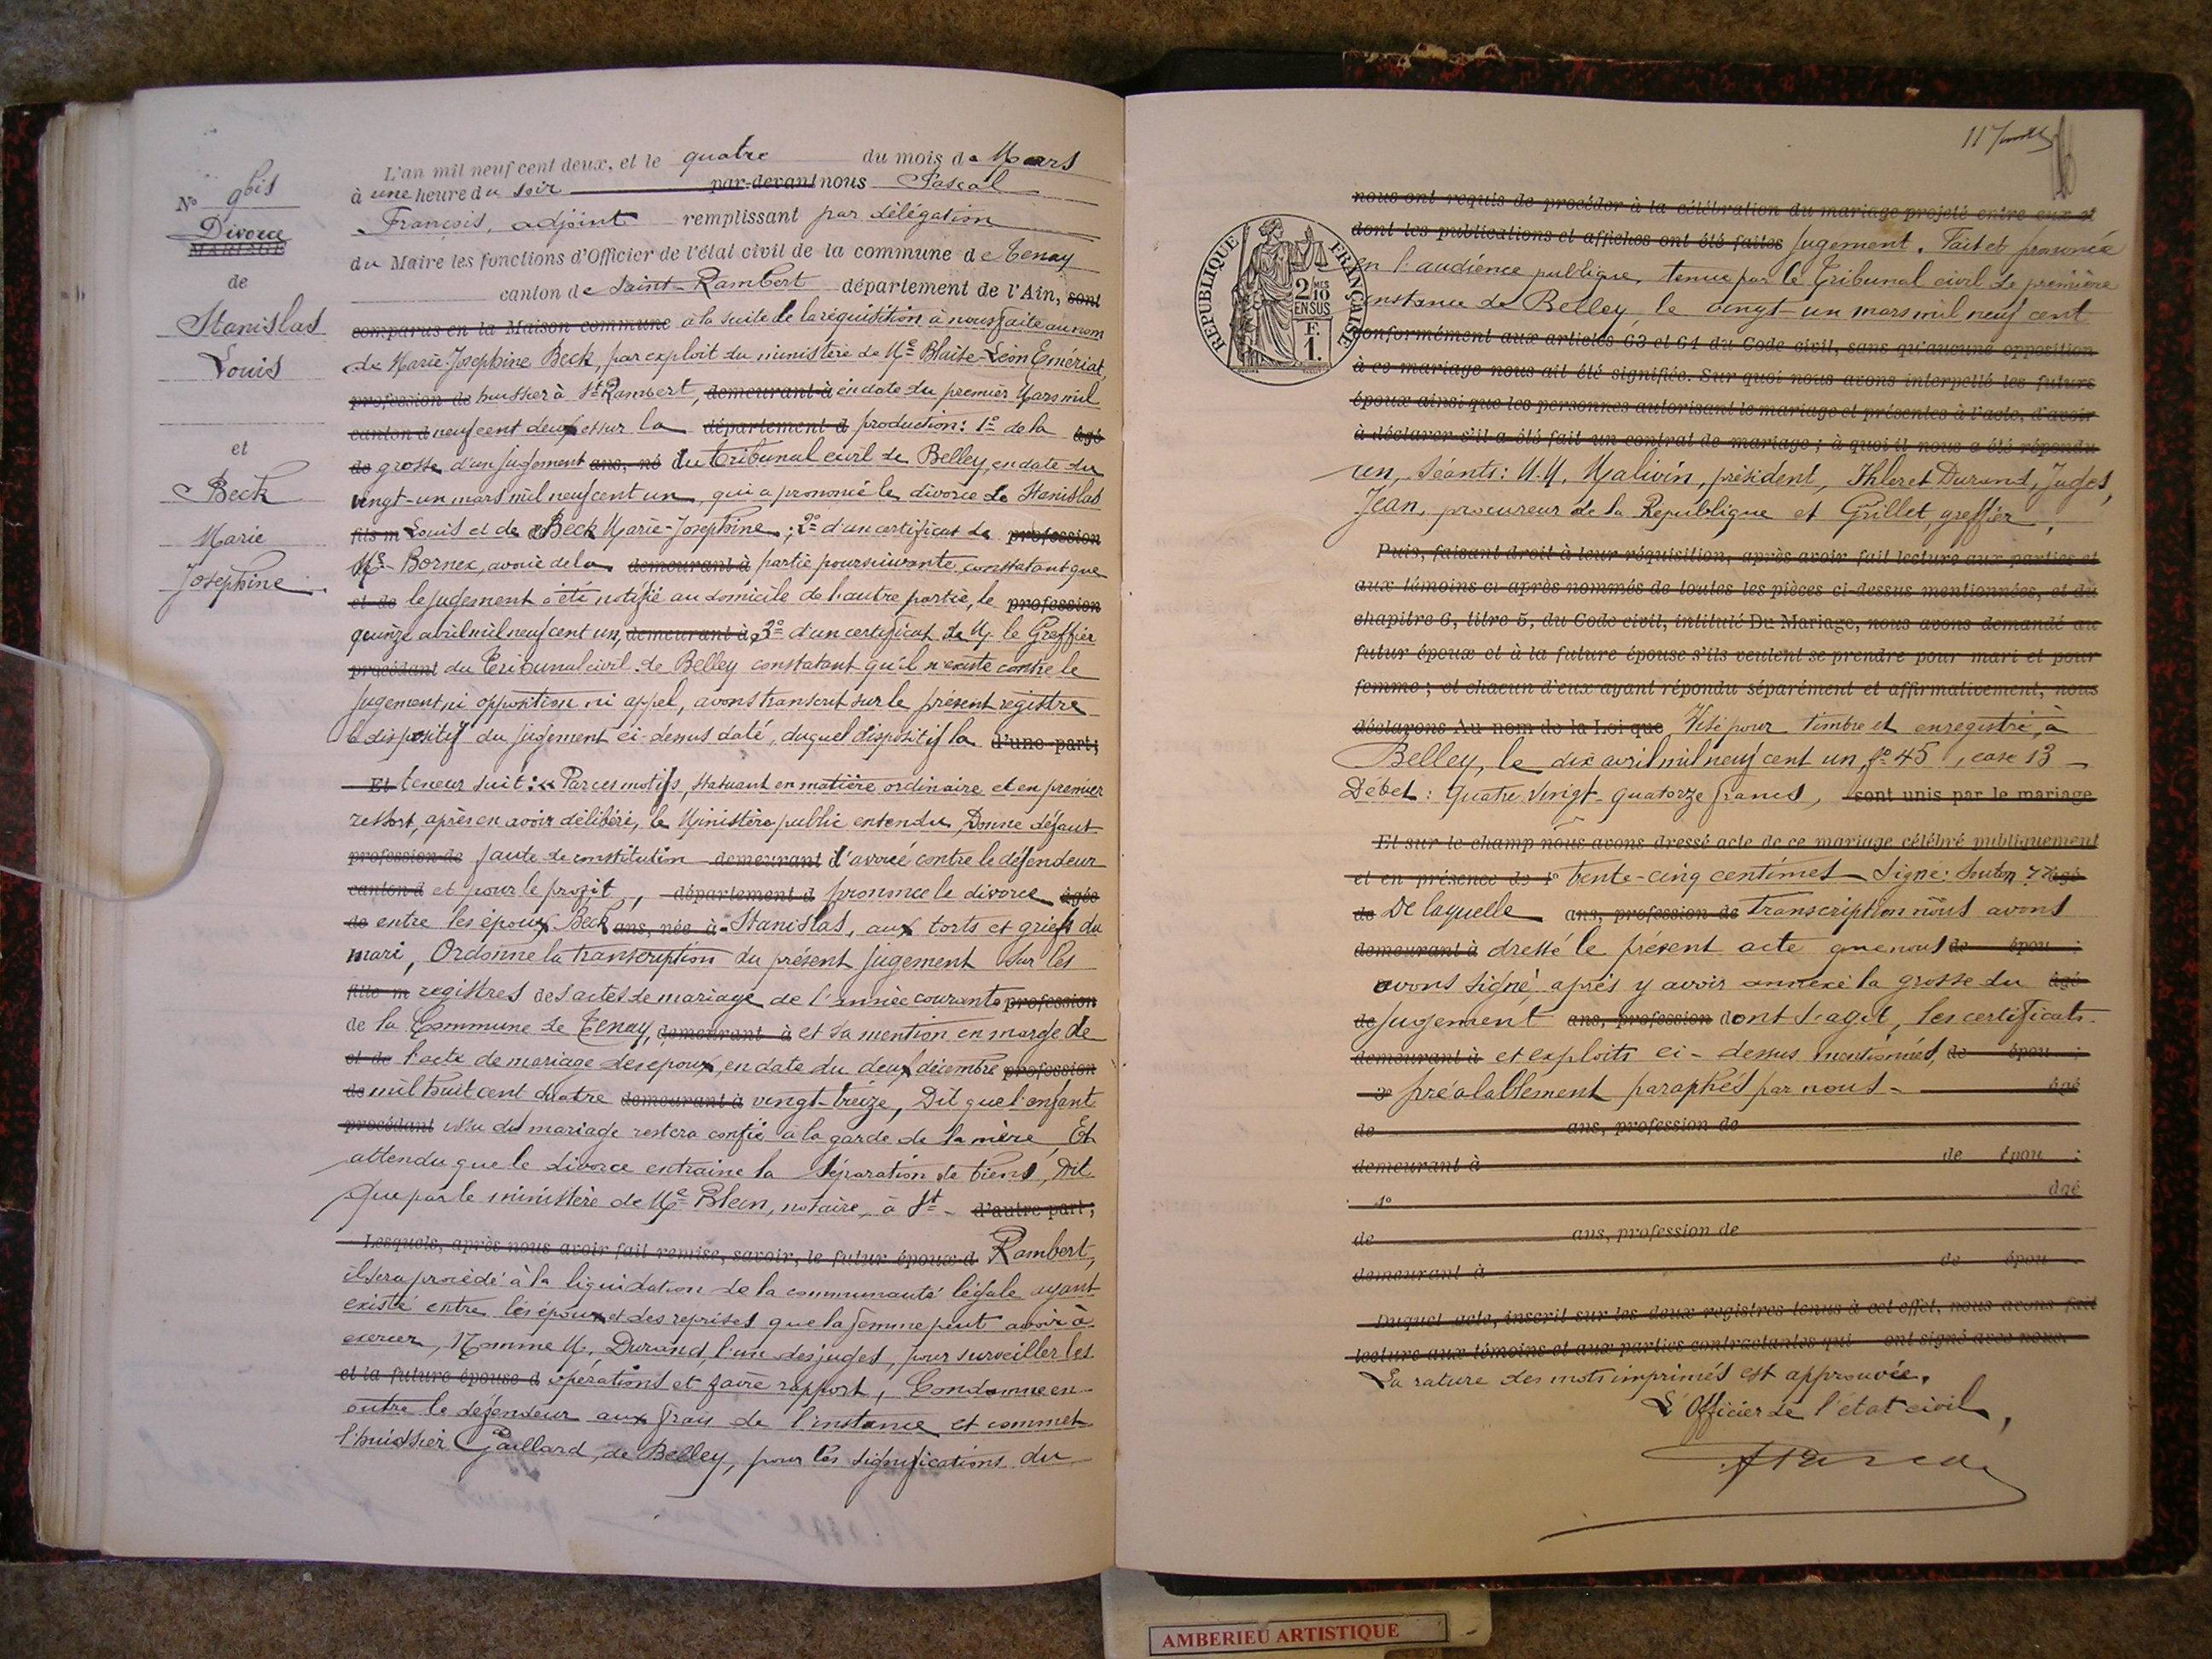 L'an mil neuf cent deux, et le quatre du mois de Mars
à une heure du soir par-devant nous Pascal
François, adjoint remplissant par délégation
du Maire les fonctions d'Officier de l'état civil de la commune de Tenay
canton de Saint-Rambert département de l'Ain, sont
comparus en la Maison commune à la suite de la réquisition à nous faite au nom
de Marie-Josephine Beck, par exploit du ministère de Me Blaise-Léon Emériat,
profession de huissier à St Rambert, demeurant à en date du premier Mars mil
canton d neuf cent deux et sur la département d production: 1° de la âgé
de grosse d'un jugement ans, né du Tribunal civil de Belley, en date du
vingt-un mars mil neuf cent un, qui a prononcé le divorce de Stanislas
fils m Louis et de Beck Marie-Josephine; 2° d'un certificat de profession
Me Bornex, avoué de la demeurant à partie poursuivante, constatant que
et de le jugement a été notifié au domicile de l'autre partie, le profession
quinze avril mil neuf cent un, demeurant à 3° d'un certificat de M. le Greffier
procédant du Tribunal civil de Belley constatant qu'il n'existe contre le
jugement, ni opposition ni appel, avons transcrit sur le présent registre
le dispositif du jugement ci-dessus daté, duquel dispositif la d'une part;
Et teneur suit: « Par ces motifs, statuant en matière ordinaire et en premier
ressort, après en avoir délibéré, le Ministère public entendu, Donne défaut
profession de faute de constitution demeurant d'avoué contre le défendeur
canton d et pour le profit, département d prononce le divorce âgée
de entre les époux Beck ans, née à Stanislas, aux torts et griefs du
mari, Ordonne la transcription du présent jugement sur les
fille m registres des actes de mariage de l'année courante profession
de la Commune de Tenay, demeurant à et sa mention en marge de
et de l'acte de mariage des époux, en date du deux décembre profession
de mil huit cent quatre demeurant à vingt-treize, Dit que l'enfant
procédant issu du mariage restera confié à la garde de la mère, Et
attendu que le divorce entraîne la séparation de biens, Dit
que par le ministère de Me Blein, notaire, à St- d'autre part;
Lesquels, après nous avoir fait remise, savoir, le futur époux d Rambert,
il sera procédé à la liquidation de la communauté légale ayant
existé entre les époux et des reprises que la femme peut avoir à
exercer, Nomme M. Durand, l'un des juges, pour surveiller les
et la future épouse d opérations et faire rapport, Condamne en
outre le défendeur aux frais de l'instance et commet
l'huissier Gaillard, de Belley, pour les significations du
N° 9bis
Divorce
MARIAGE
de
Stanislas
Louis
et
Beck
Marie
Josephine.
nous ont requis de procéder à la célébration du mariage projeté entre eux et
dont les publications et affiches ont été faites jugement. Fait et prononcé
en l'audience publique, tenue par le Tribunal civil de première
instance de Belley, le vingt-un mars mil neuf cent
conformément aux articles 63 et 64 du Code civil, sans qu'aucune opposition
à ce mariage nous ait été signifiée. Sur quoi nous avons interpellé les futurs
époux ainsi que les personnes autorisant le mariage et présentes à l'acte, d'avoir
à déclarer s'il a été fait un contrat de mariage; à quoi il nous a été répondu
un, Séants: M.M. Malivin, président, et Durand, Juges,
Jean, procureur de la République et Grillet, greffier,
Puis, faisant droit à leur réquisition, après avoir fait lecture aux parties et
aux témoins ci-après nommés de toutes les pièces ci-dessus mentionnées, et du
chapitre 6, titre 5, du Code civil, intitulé Du Mariage, nous avons demandé au
futur époux et à la future épouse s'ils veulent se prendre pour mari et pour
femme; et chacun d'eux ayant répondu séparément et affirmativement, nous
déclarons Au nom de la Loi que Visé pour timbre et enregistré, à
Belley, le dix avril mil neuf cent un, f° 45, case 13
Débet: Quatre-vingt-quatorze francs, sont unis par le mariage
Et sur le champ nous avons dressé acte de ce mariage célébré publiquement
et en présence de 1° trente-cinq centimes Signé: âgé
de De laquelle ans, profession de transcription nous avons
demeurant à dressé le présent acte que nous de épou ;
avons signé, après y avoir annexé la grosse du âgé
de jugement ans, profession dont s'agit, les certificats
demeurant à et exploits ci-dessus mentionnés, de épou ;
3° préalablement paraphés par nous. âgé
de ans, profession de
demeurant à de épou ;
4° âgé
de ans, profession de
demeurant à de épou
Duquel acte, inscrit sur les deux registres tenus à cet effet, nous avons fait
lecture aux témoins et aux parties contractantes qui ont signé avec nous.
La rature des mots imprimés est approuvée.
L'Officier de l'état civil,
RÉPUBLIQUE FRANÇAISE
2 MES
10
EN SUS
F.
1.
AMBERIEU ARTISTIQUE